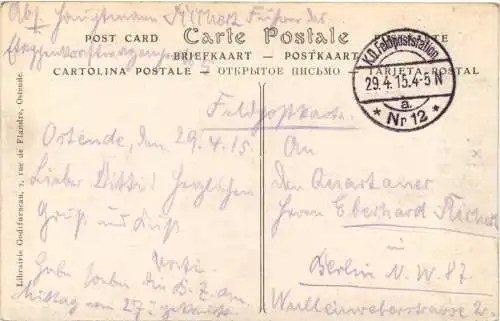 Abs. Hauptmann Richert Führer der
POST CARD Carte Postale
BRIEFKAART — POSTKAART
CARTOLINA POSTALE — ОТКРЫТОЕ ПИСЬМО — TARJETA POSTAL
K.D. Feldpoststation
29.4.15.4-5 N
a.
* Nr 12 *
Librairie Godtfurneau, 7, rue de Flandre, Ostende.
Feldpostkarte.
Ostende, den 29.4.15.
Lieber Ditti! Herzlichen
Gruß und Kuß.
Vati.
Habe soeben die B. Z. am
Mittag vom 27.
An
den Quartaner
Herrn Eberhard Richert
in
Berlin N.W. 87.
Wullenweberstrasse